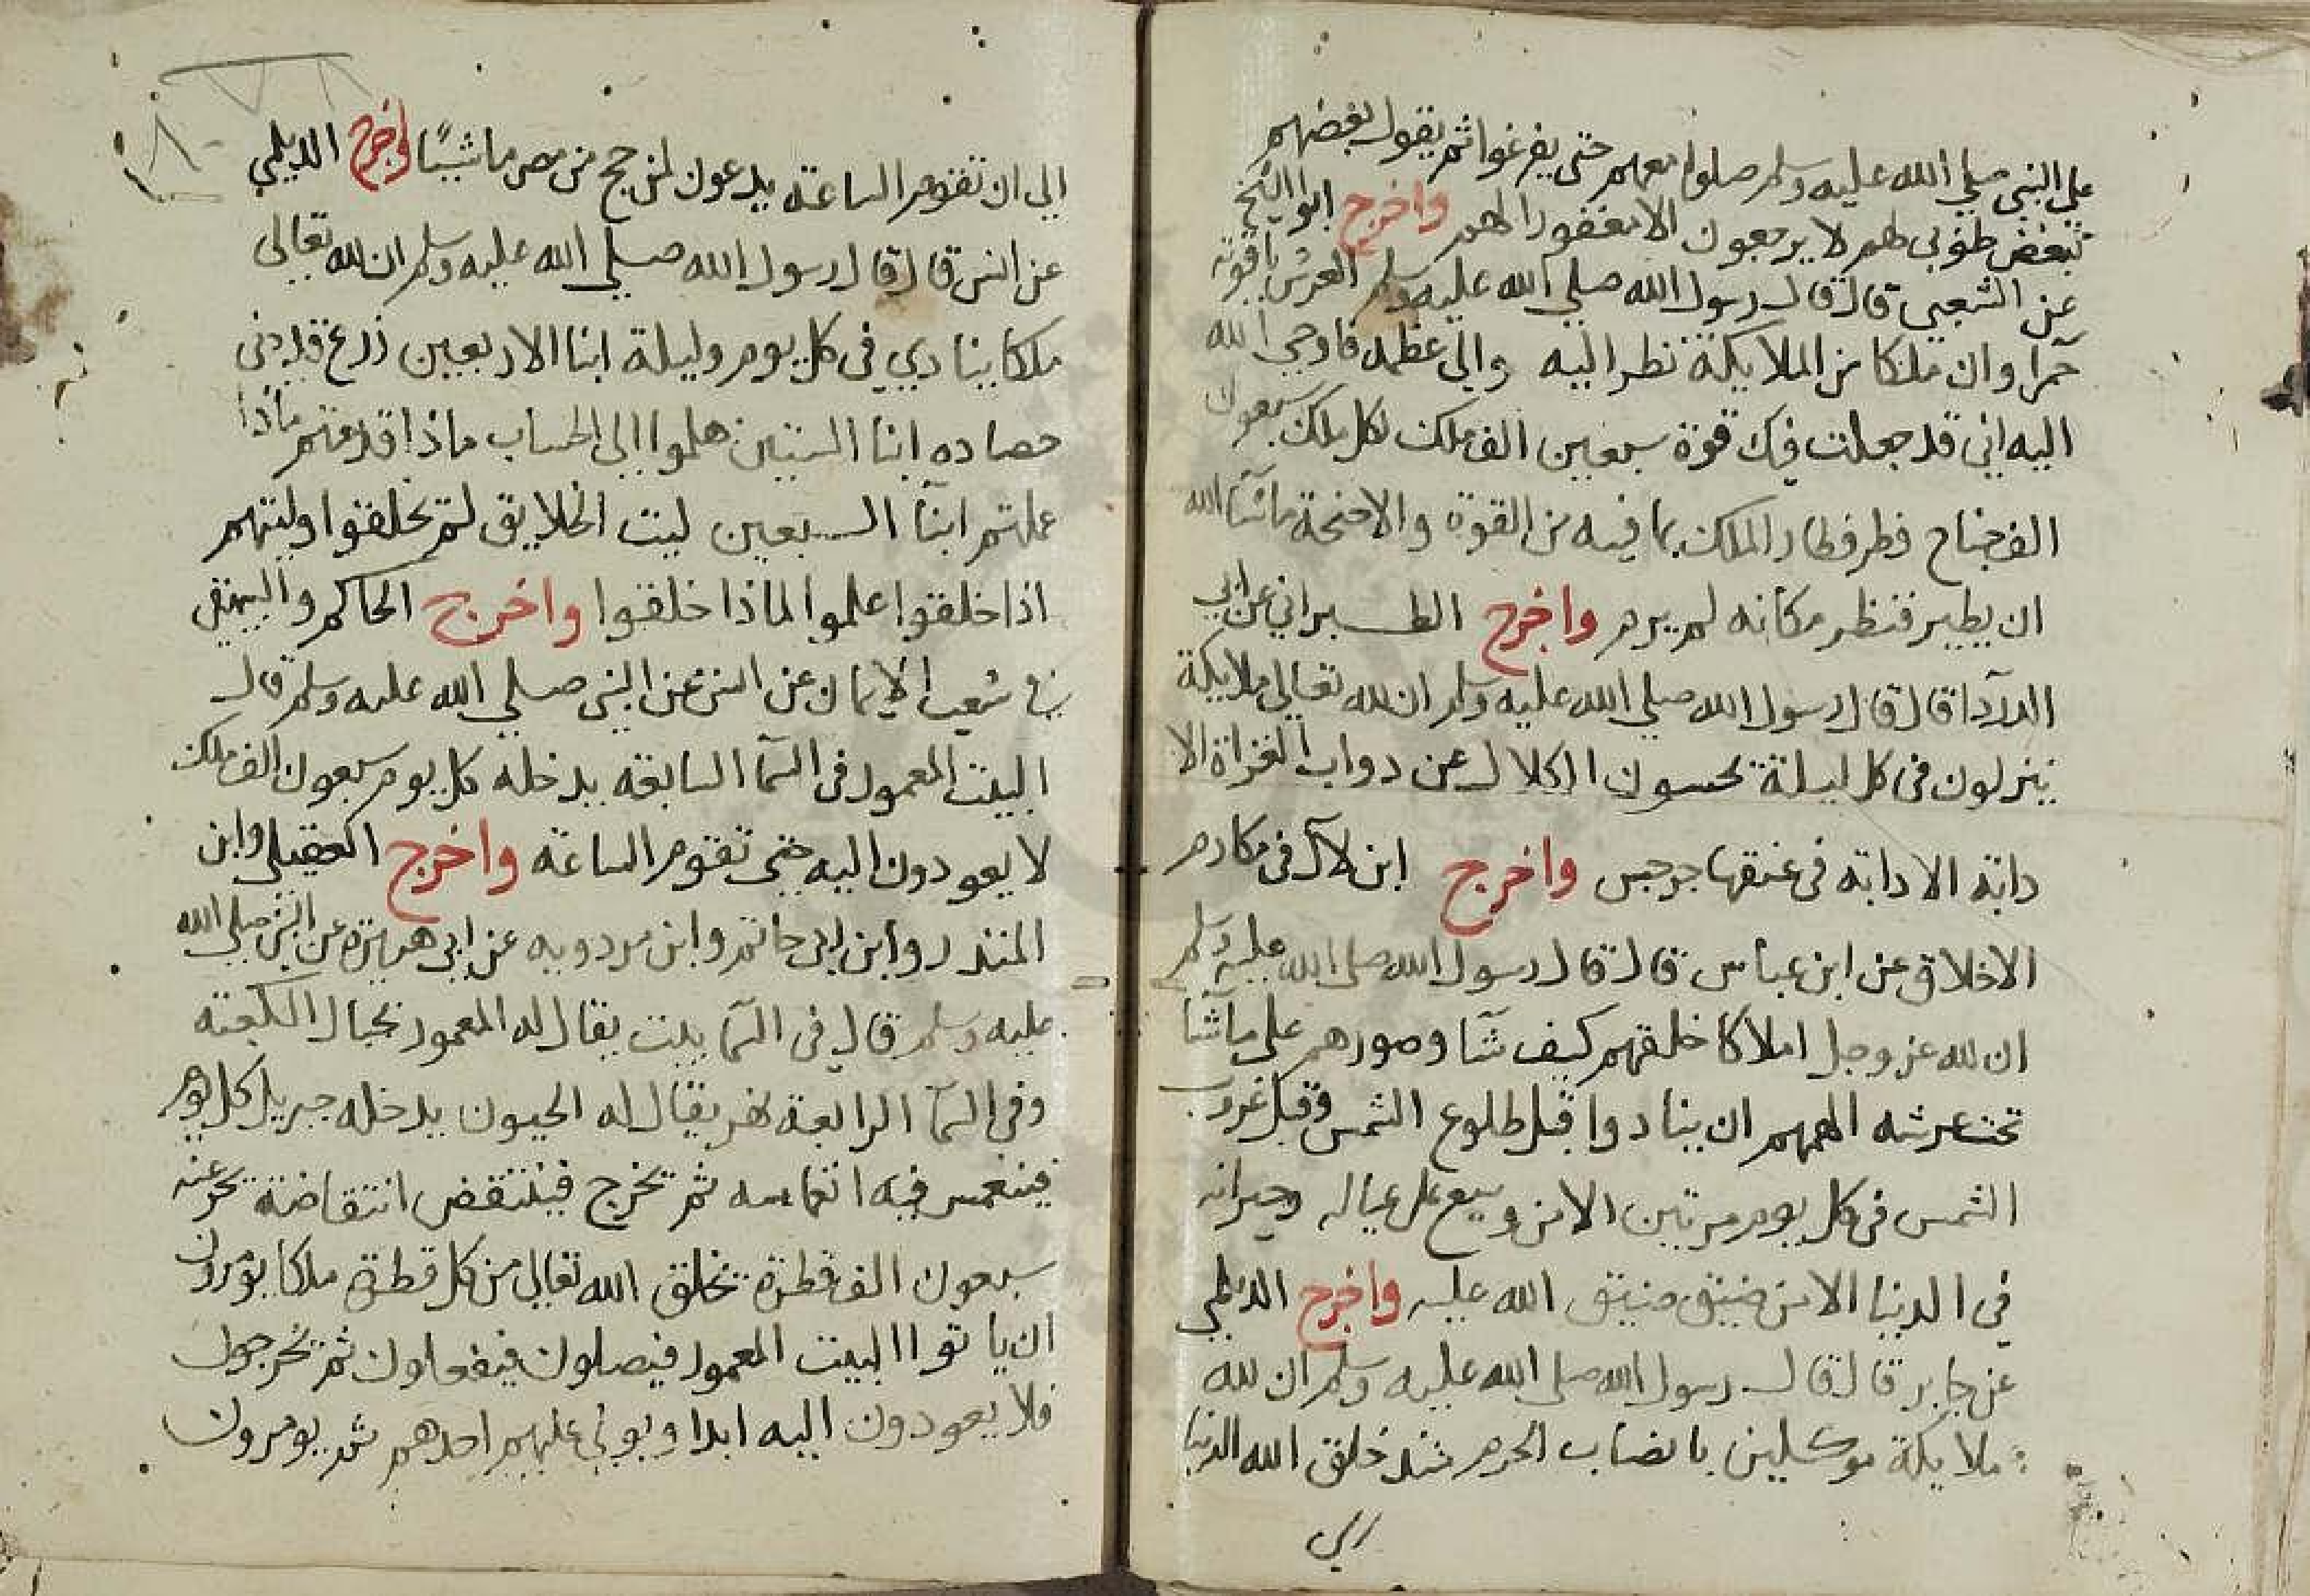 على النبي صلى الله عليه وسلم صلوا معهم حتى يفرغوا ثم يقول بعضهم
لبعض طوبى لهم لا يرجعون الا مغفورا لهم واخرج ابو الشيخ
عن الشعبي قال قال رسول الله صلى الله عليه وسلم العرش ياقوتة
حمرا وان ملكا من الملايكة نظر اليه والى عظمه فاوحي الله
اليه اني قد جعلت فيك قوة سبعين الف ملك لكل ملك سبعون
الف جناح فطر فطار الملك بما فيه من القوة والاجنحة ماشا الله
ان يطير فنظر مكانه لم يرم واخرج الطبراني عن ابي
الدردا قال قال رسول الله صلي الله عليه وسلم ان لله تعالى ملايكة
ينزلون فى كل ليلة يحسون الكلال عن دواب الغزاة الا
دابة الا دابة فى عنقها جرجس واخرج ابن لال فى مكارم
الاخلاق عن ابن عباس قال قال رسول الله صلى الله عليه وسلم
ان لله عز وجل املاكا خلقهم كيف شا وصورهم على ماشا
تحت عرشه الهمهم ان ينادوا قبل طلوع الشمس وقبل غروب
الشمس فى كل يوم مرتين الا من وسع على عياله وجيرانه
في الدنيا الا من ضيق ضيق الله عليه واخرج الديلمي
عن جابر قال قال رسول الله صلى الله عليه وسلم ان لله
ملايكة موكلين بانصاب الحرم منذ خلق الله الدنيا
الي
٨٠
إلى ان تقوم الساعة يدعون لمن حج من مصر ماشيًا واخرج الديلمي
عن انس قال قال رسول الله صلي الله عليه وسلم ان لله تعالى
ملكا ينادي في كل يوم وليلة ابنا الاربعين زرع قد دنى
حصاده ابنا الستين هلموا الى الحساب ماذا قدمتم ماذا
عملتم ابنا السبعين ليت الخلايق لم يخلقوا وليتهم
اذا خلقوا علموا لماذا خلقوا واخرج الحاكم والبيهقي
في شعب الايمان عن انس عن النبى صلي الله عليه وسلم قال
البيت المعمور فى السما السابعة يدخله كل يوم سبعون الف ملك
لا يعودون اليه حتى تقوم الساعة واخرج العقيلى وابن
المنذر وابن ابى حاتم وابن مردويه عن ابى هريرة عن النبى صلى الله
عليه وسلم قال فى السما بيت يقال له المعمور بحيال الكعبة
وفى السما الرابعة نهر يقال له الحيون يدخله جبريل كل يوم
فينغمس فيه انغماسه ثم يخرج فينتقض انتقاضة يخر عنه
سبعون الف قطرة يخلق الله تعالى من كل قطرة ملكا يومرون
ان ياتوا البيت المعمور فيصلون فيفعلون ثم يخرجون
فلا يعودون اليه ابدا ويولى عليهم احدهم ثم يومرون